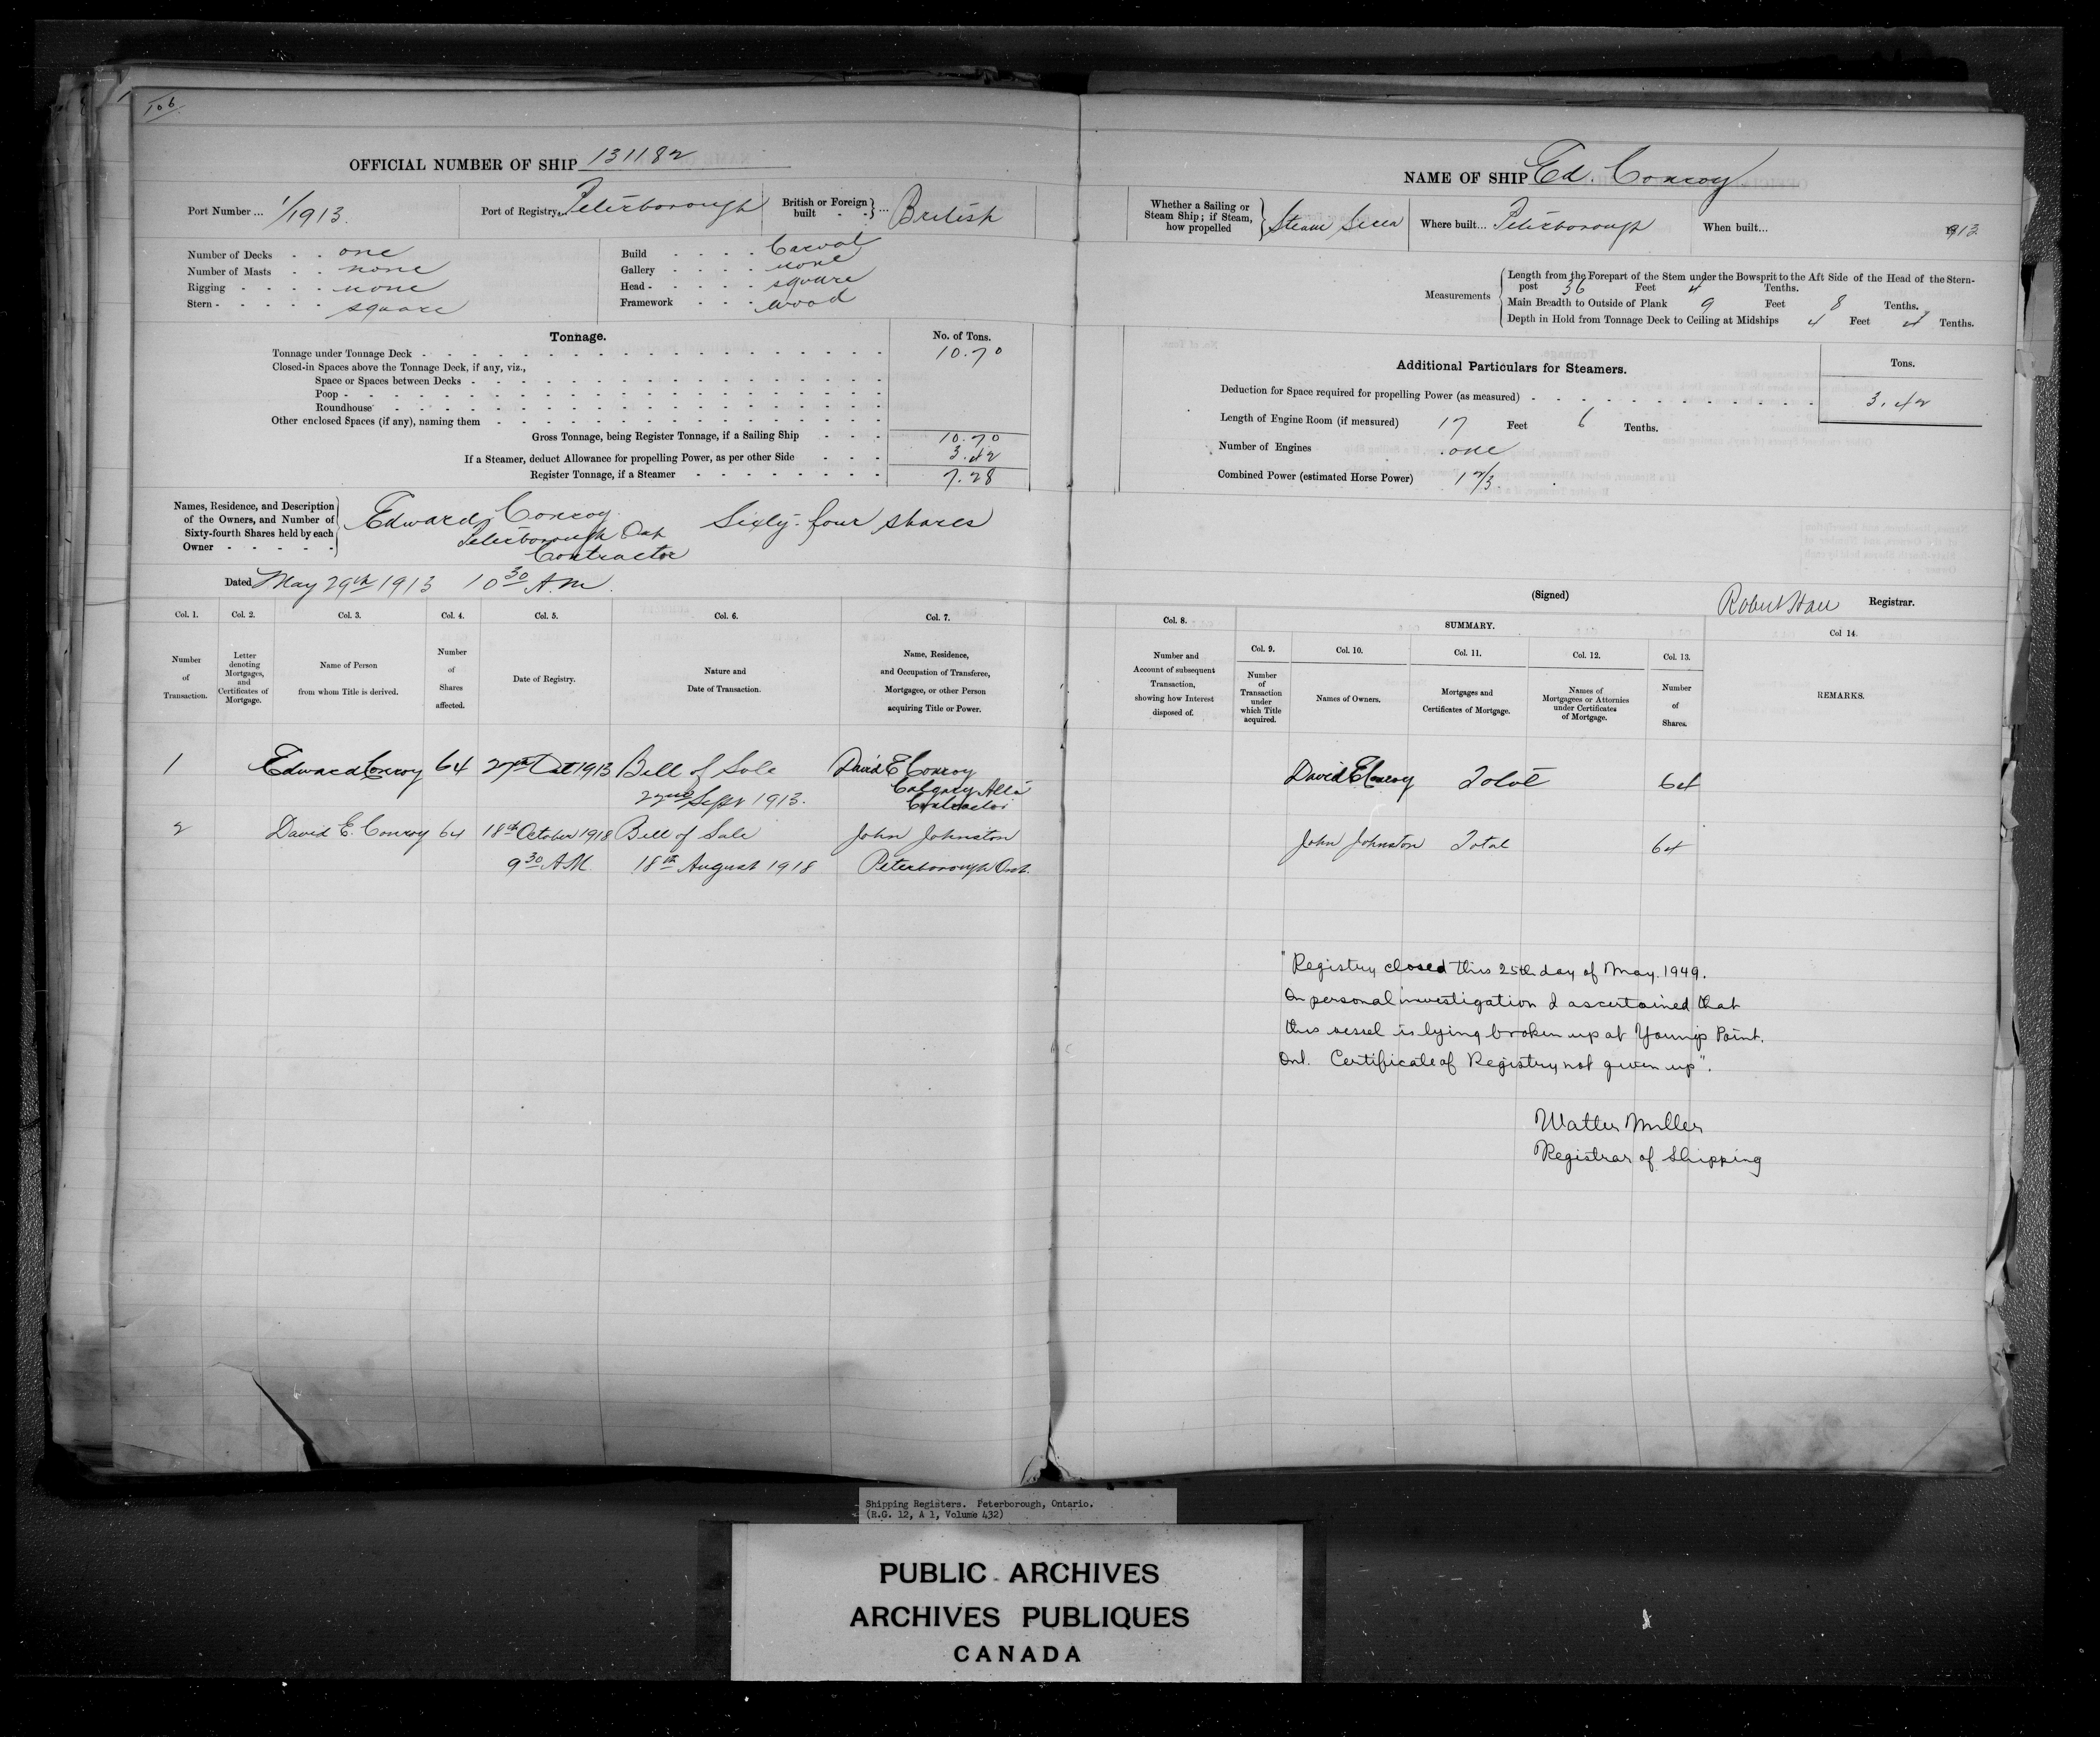 106
OFFICIAL NUMBER OF SHIP 131182
Port Number ... 1/1913.
Port of Registry. Peterborough
British or Foreign built - - } ... British
Number of Decks - - one
Number of Masts - - none
Rigging - - - - none
Stern - - - - - square
Build - - - - Carval
Gallery - - - - none
Head - - - - - square
Framework - - - wood
Tonnage.
No. of Tons.
Tonnage under Tonnage Deck - 10.70
Closed-in Spaces above the Tonnage Deck, if any, viz.,
Space or Spaces between Decks -
Poop -
Roundhouse -
Other enclosed Spaces (if any), naming them -
Gross Tonnage, being Register Tonnage, if a Sailing Ship - - - 10.70
If a Steamer, deduct Allowance for propelling Power, as per other Side - - - 3.42
Register Tonnage, if a Steamer - 7.28
Names, Residence, and Description of the Owners, and Number of Sixty-fourth Shares held by each Owner - - - - -
Edward Conroy Sixty-four shares
Peterborough Ont
Contractor
Dated May 29th 1913 10 30 A.M.
Col. 1. Col. 2. Col. 3. Col. 4. Col. 5. Col. 6. Col. 7.
Number of Transaction.
Letter denoting Mortgages, and Certificates of Mortgage.
Name of Person from whom Title is derived.
Number of Shares affected.
Date of Registry.
Nature and Date of Transaction.
Name, Residence, and Occupation of Transferee, Mortgagee, or other Person acquiring Title or Power.
1 Edward Conroy 64 27th Oct 1913 Bill of Sale David E Conroy
22nd Sept 1913. Calgary Alta
Contractor
2 David E. Conroy 64 18th October 1918 Bill of Sale John Johnston
9 30 A.M. 18th August 1918 Peterborough Ont.
NAME OF SHIP Ed. Conroy
Whether a Sailing or Steam Ship; if Steam, how propelled } Steam Screw
Where built... Peterborough
When built... 1913
Measurements
Length from the Forepart of the Stem under the Bowsprit to the Aft Side of the Head of the Stern-
post 36 Feet 4 Tenths.
Main Breadth to Outside of Plank 9 Feet 8 Tenths.
Depth in Hold from Tonnage Deck to Ceiling at Midships 4 Feet 4 Tenths.
Additional Particulars for Steamers.
Tons.
Deduction for Space required for propelling Power (as measured) - 3.42
Length of Engine Room (if measured) 17 Feet 6 Tenths.
Number of Engines one
Combined Power (estimated Horse Power) 1 2/3.
(Signed) Robert Hall Registrar.
Col. 8.
SUMMARY.
Col 14.
Col. 9. Col. 10. Col. 11. Col. 12. Col. 13.
Number and Account of subsequent Transaction, showing how Interest disposed of.
Number of Transaction under which Title acquired.
Names of Owners.
Mortgages and Certificates of Mortgage.
Names of Mortgagees or Attornies under Certificates of Mortgage.
Number of Shares.
REMARKS.
David E Conroy Total 64
John Johnston Total 64
"Registry closed this 25th day of May. 1949.
On personal investigation I ascertained that
this vessel is lying broken up at Young's Point.
Ont. Certificate of Registry not given up".
Walter Miller
Registrar of Shipping
Shipping Registers. Peterborough, Ontario.
(R.G. 12, A 1, Volume 432)
PUBLIC ARCHIVES
ARCHIVES PUBLIQUES
CANADA